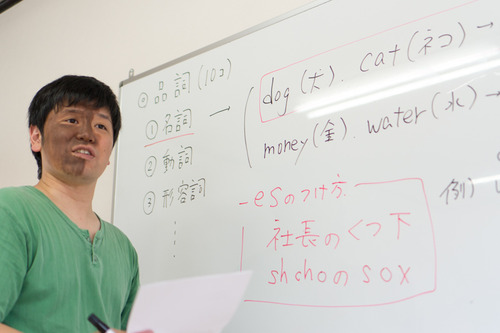 ◎ 品詞 (10コ)
① 名詞 → dog (犬). cat (ネコ) →
money (金). water (水) →
② 動詞
③ 形容詞
⋮
esのつけ方
社長のくつ下
shchoのsox
例)